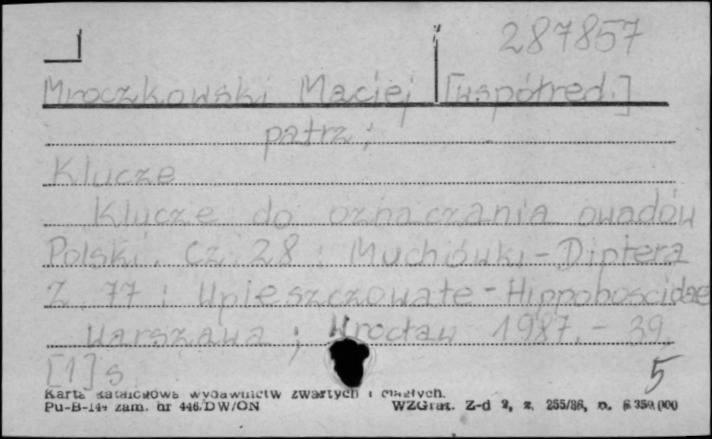 287857
Mroczkowski Maciej [współred.]
patrz:
Klucze
Klucze do oznaczania owadów
Polski. Cz. 28 : Muchówki - Diptera
Z. 77 : Wpleszczowate - Hippoboscidae
Warszawa ; Wrocław 1987. - 39,
[1] s. 5
Karta katalogowa wydawnictw zwartych i ciągłych.
Pu-B-144 zam. nr 446/DW/ON WZGraf. Z-d 2, z. 255/86, n. 350.000